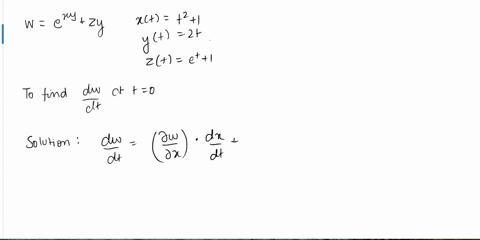 w = e^{xy} + zy x(t) = t² + 1
y(t) = 2t
z(t) = e^t + 1
To find dw/dt at t = 0
Solution : dw/dt = (∂w/∂x) · dx/dt +